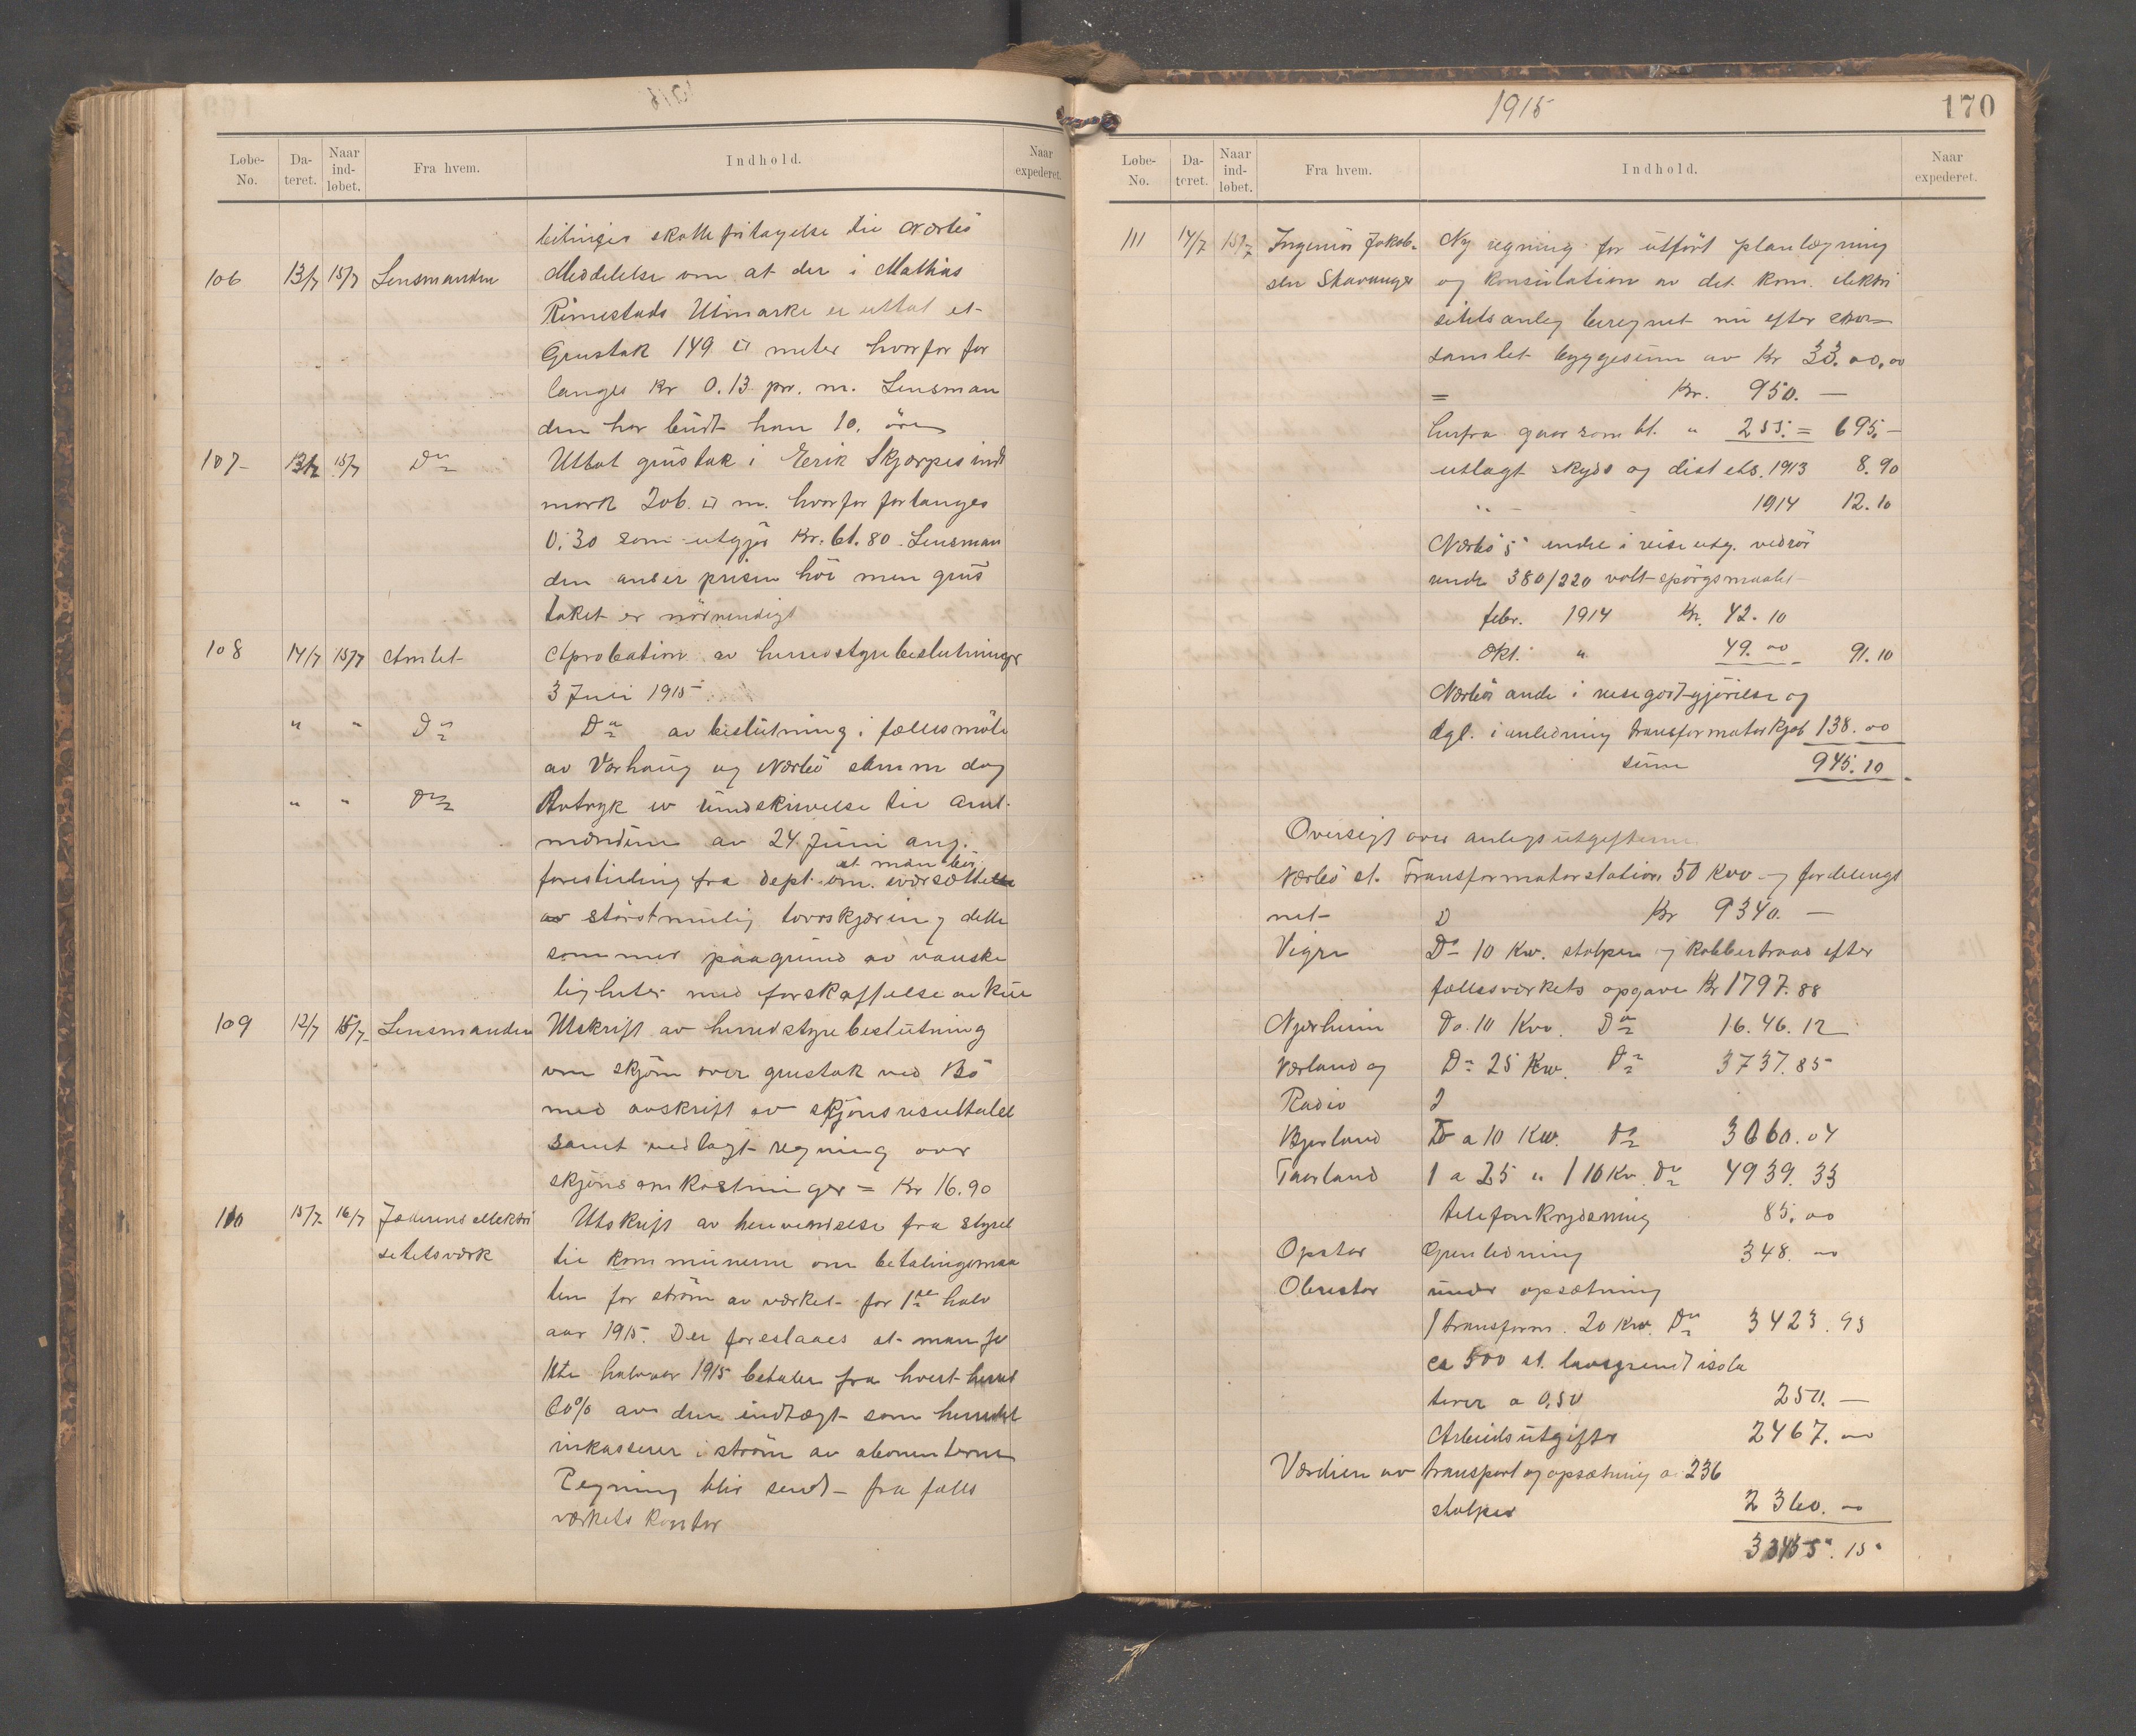 Løbe-No. Da-teret. Naar ind-løbet. Fra hvem. Indhold. Naar expederet.
skattefritagelse til Nærbö
106 13/7 15/7 Lensmanden Meddelelse om at der i Mathias
Rimestads Utmarke er uttat et
Grustak 149 □ meter hvorfor for
langes Kr 0.13 pr. m. Lensman
den har budt ham 10. öre
107 13/7 15/7 Do Uttat grustak i Eerik Skjærpes ind
mark 206 □ m. hvorfor forlanges
0.30 som utgjör Kr. 61.80 Lensman
den anser prisen höi men grus
taket er nörvendigt
108 14/7 15/7 Amtet Aprobation av herredstyrebeslutninger
3 Juli 1915
" " Do Do av beslutning i fællesmöte
av Varhaug og Nærbö samm dag
" " Do Avtryk av rundskrivelse til amt
mændene av 24 Juni ang.
forestilling fra dept. om at man bör iværsætte
av störst mulig torvskjæring dette
sommer paagrund av vanske
ligheter med forskaffelse av kul
109 12/7 15/7 Lensmanden Utskrift av herredstyrebeslutning
om skjøn over grustak ved Bö
med avskrift av skjönsresultatet
samt vedlagt regning over
skjöns omkostninger = Kr 16.90
110 15/7 16/7 Jæderens elektri Utskrift av henvendelse fra styret
setetsværk til kommunerne om betalingsmaa
ten for ström av værket for 1ste halv
aar 1915. Der foreslaaes at man for
1ste halvaar 1915 betaler fra hvert herred
60% av den indtægt som herredet
inkasserer i ström av abonenterne
Regning blir sendt fra fælles
værkets kontor
1915 170
Løbe-No. Da-teret. Naar ind-løbet. Fra hvem. Indhold. Naar expederet.
111 14/7 15/7 Ingeniör Jakob- Ny regning for utfört planlægning
sen Stavanger og konsulation av det kom. elektri
sitetsanleg beregnet nu efter
samlet byggesum av Kr 33.00,00
= Kr. 950. —
herfra gaar som bt. " 255. = 695,—
utlagt skyds og diet ets. 1913 8.90
" 1914 12.10
Nærbö's andel i reiseutg. vedrör
ende 380/220 volt-spörgsmaalet
febr. 1914 Kr. 42.10
Okt. " 49.00 91.10
Nærbös andel i reisegodtgjörelse og
dgl. i anledning transformatorkjöb 138.00
sum 945.10
Oversigt over anlegsutgifterne
Nærbö st. Transformatorstation 50 Kw og fordelings
net Kr 9340.—
Vigre Do 10 Kw. stolper og kobbertraad efter
fællesværkets opgave Kr 1797.88
Njærheim Do. 10 Kw. Do 16.46.12
Nærland og Do 25 Kw. Do 3737.85
Radio
Bjorland Do a 10 Kw. Do 3060.04
Taarland 1 a 25 " 1 10 Kw Do 4939.33
telefonkrydsning 85.00
Opstar Gjenledning 348.00
Obrestar under opsætning
1 transform. 20 Kw. Do 3423.93
ca 500 st. isola
torer a 0,50 250.—
Arbeidsutgifter 2467.00
Værdien av transport og opsætning a 236
stolper 2360.00
33455.15